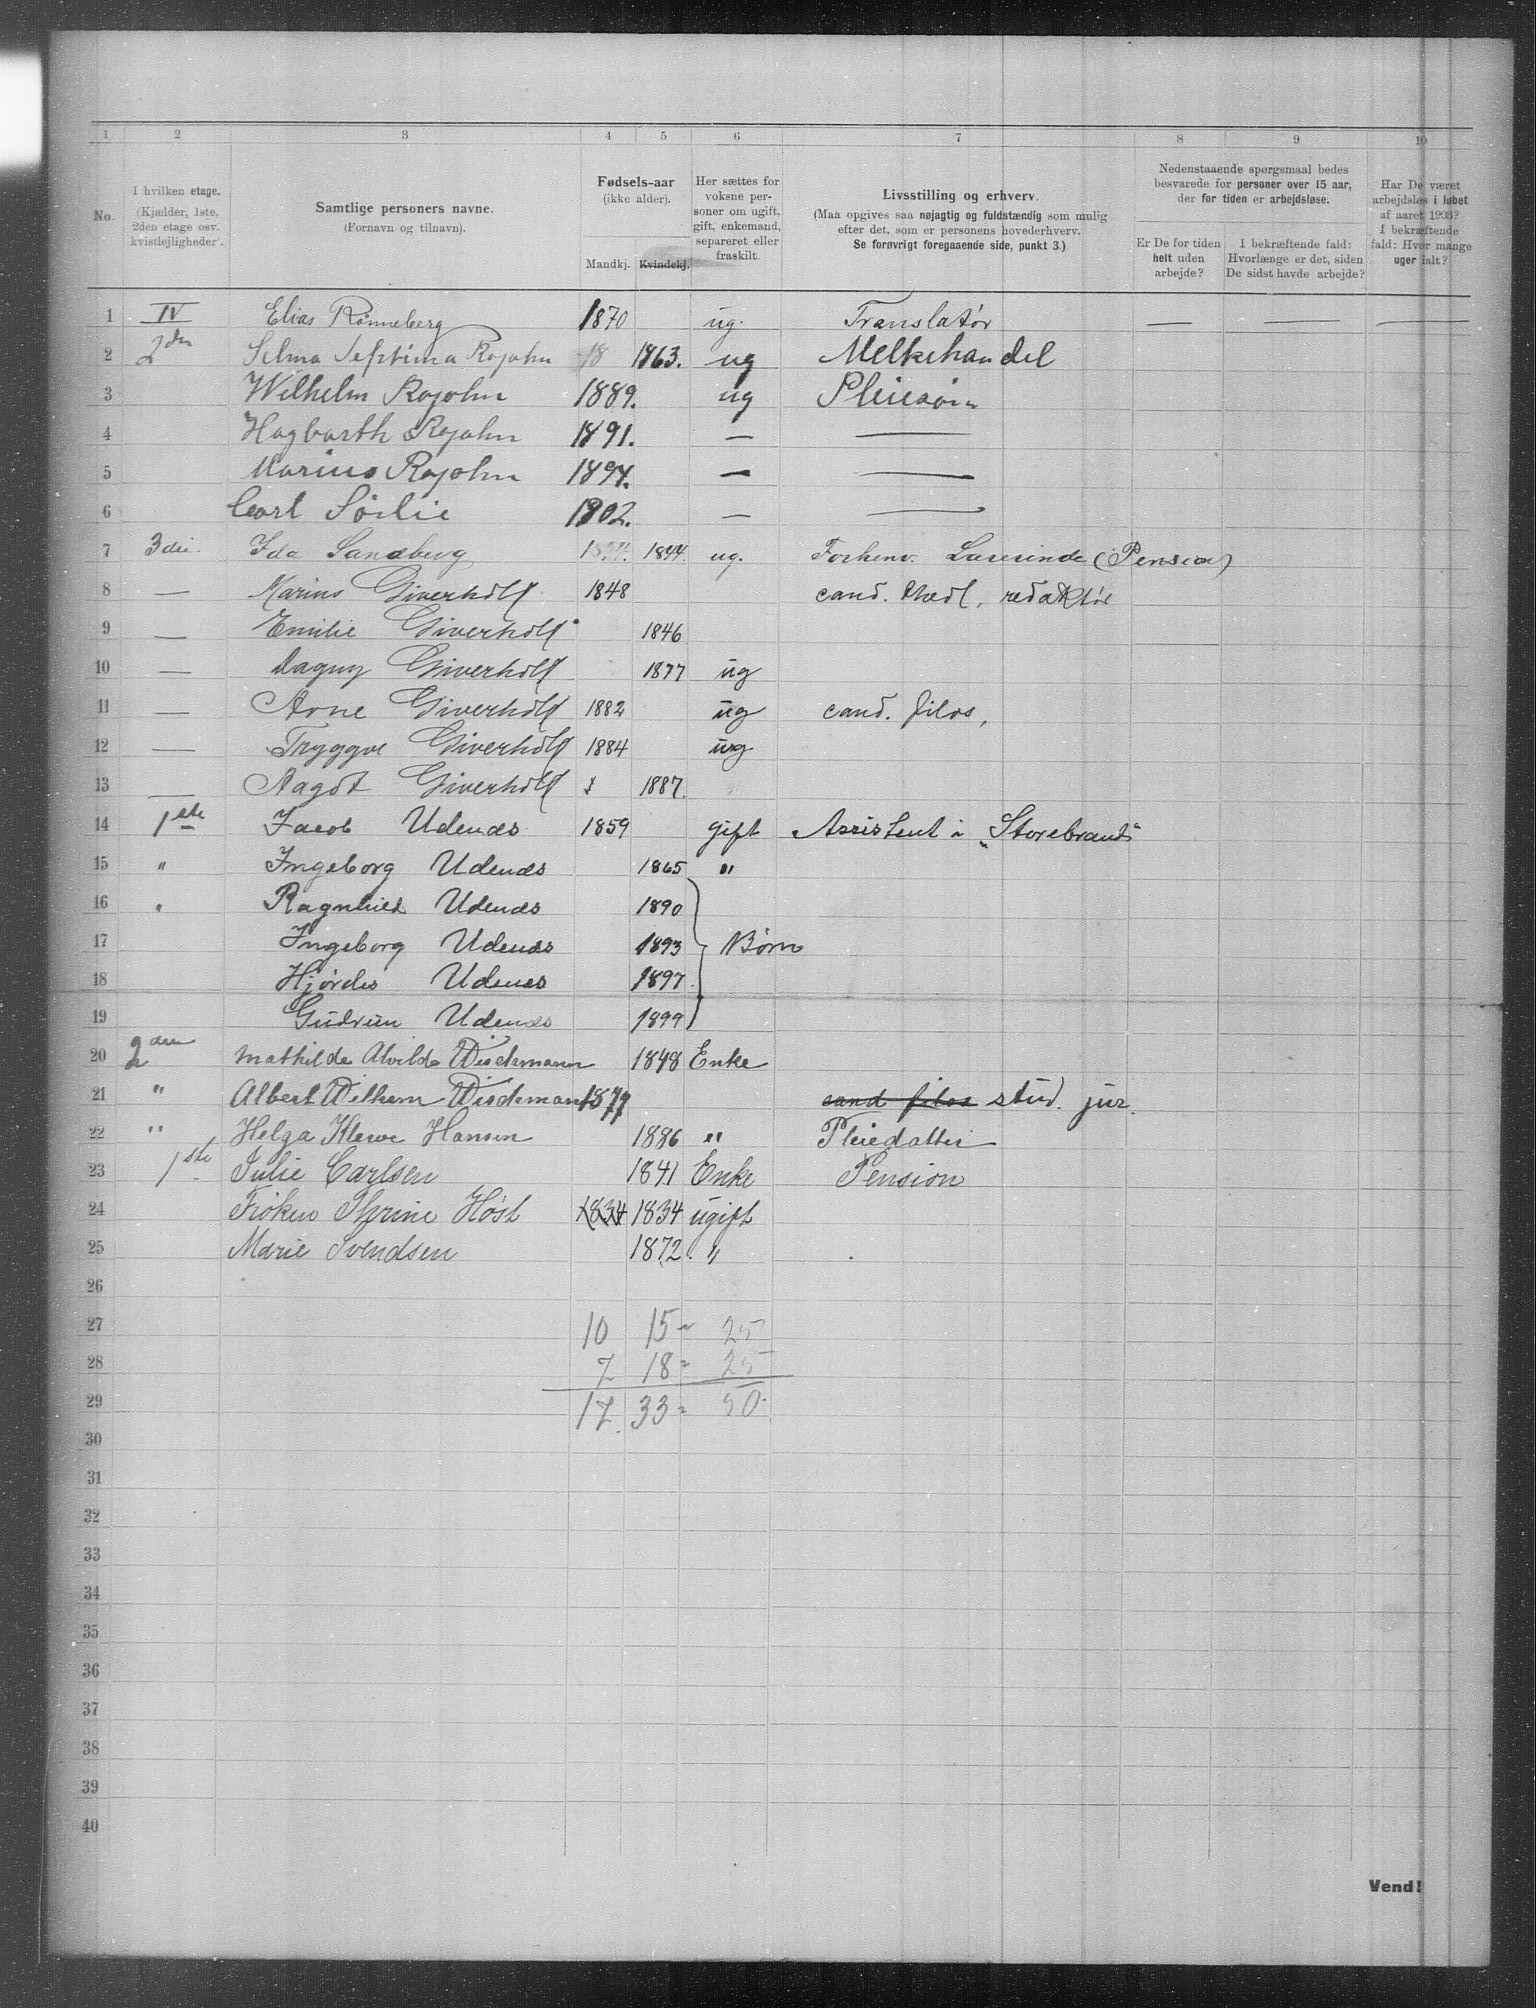 1 2 3 4 5 6 7 8 9 10
No.
I hvilken etage.
(Kjælder, 1ste,
2den etage osv.
kvistlejligheder).
Samtlige personers navne.
(Fornavn og tilnavn).
Fødsels-aar
(ikke alder).
Mandkj. Kvindekj.
Her sættes for
voksne per-
soner om ugift,
gift, enkemand,
separeret eller
fraskilt.
Livsstilling og erhverv.
(Maa opgives saa nøjagtig og fuldstændig som mulig
efter det, som er personens hovederhverv.
Se forøvrigt foregaaende side, punkt 3.)
Nedenstaaende spørgsmaal bedes
besvarede for personer over 15 aar,
der for tiden er arbejdsløse.
Er De for tiden
helt uden
arbejde?
I bekræftende fald:
Hvorlænge er det, siden
De sidst havde arbejde?
Har De været
arbejdsløs i løbet
af aaret 1903?
I bekræftende
fald: Hvor mange
uger ialt?
1 IV Elias Rønneberg 1870 ug. Translatør — — —
2 2den Selma Septima Rojahn 18 1863. ug Melkehandel
3 Wilhelm Rojohn 1889. ug Pleiesøn
4 Hagbarth Rojahn 1891. — —
5 Marius Rojohn 1894. — —
6 Carl Sørlie 1902. — —
7 3die. Ida Sandberg 1844 ug. Forhenv. Lærerinde (Pension)
8 — Marius Giverholt 1848 cand. theol, redaktør
9 — Emilie Giverholt 1846
10 — Dagny Giverholt 1877 ug
11 — Arne Giverholt 1882 ug cand. filos,
12 — Tryggve Giverholt 1884 ug
13 — Aagot Giverholt 1887.
14 1ste Jacob Udenæs 1859 gift Assistent i „Storebrand“
15 " Ingeborg Udenæs 1865 "
16 " Ragnhild Udenæs 1890
17 Ingeborg Udenæs 1893 Børn
18 Hjørdis Udenæs 1897
19 Gudrun Udenæs 1899
20 2den Mathilde Alvilde Wisdemann 1848 Enke
21 " Albert Wilhem Wisdemann 1877 cand filos stud. jur.
22 " Helga Klewe Hansen 1886 " Pleiedatter
23 1ste Julie Carlsen 1841 Enke Pension
24 Frøken Thrine Høst 1834 1834 ugift
25 Marie Svendsen 1872. "
26
27 10 15 = 25
28 7 18 = 25
29 17. 33 = 50.
30
31
32
33
34
35
36
37
38
39
40
Vend!